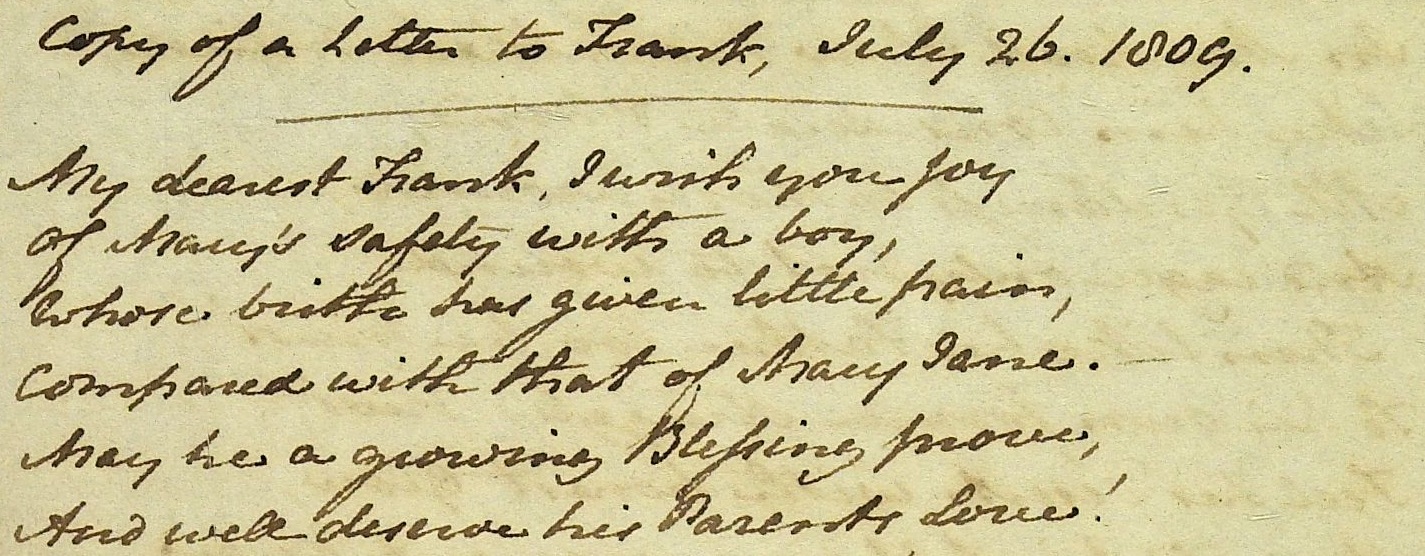 Copy of a Letter to Frank, July 26. 1809.
My dearest Frank, I wish you joy
Of Mary's safety with a boy,
Whose birth has given little pain,
Compared with that of Mary Jane. —
May he a growing Blessing prove,
And well deserve his Parents Love!